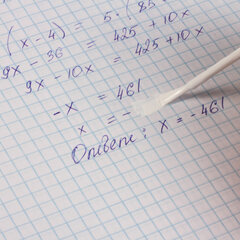 (x - 4) = 5 · (85
9x - 36 = 425 + 10x
9x - 10x = 425 + 10x
-x = 461
x = -
Ответ: x = -461